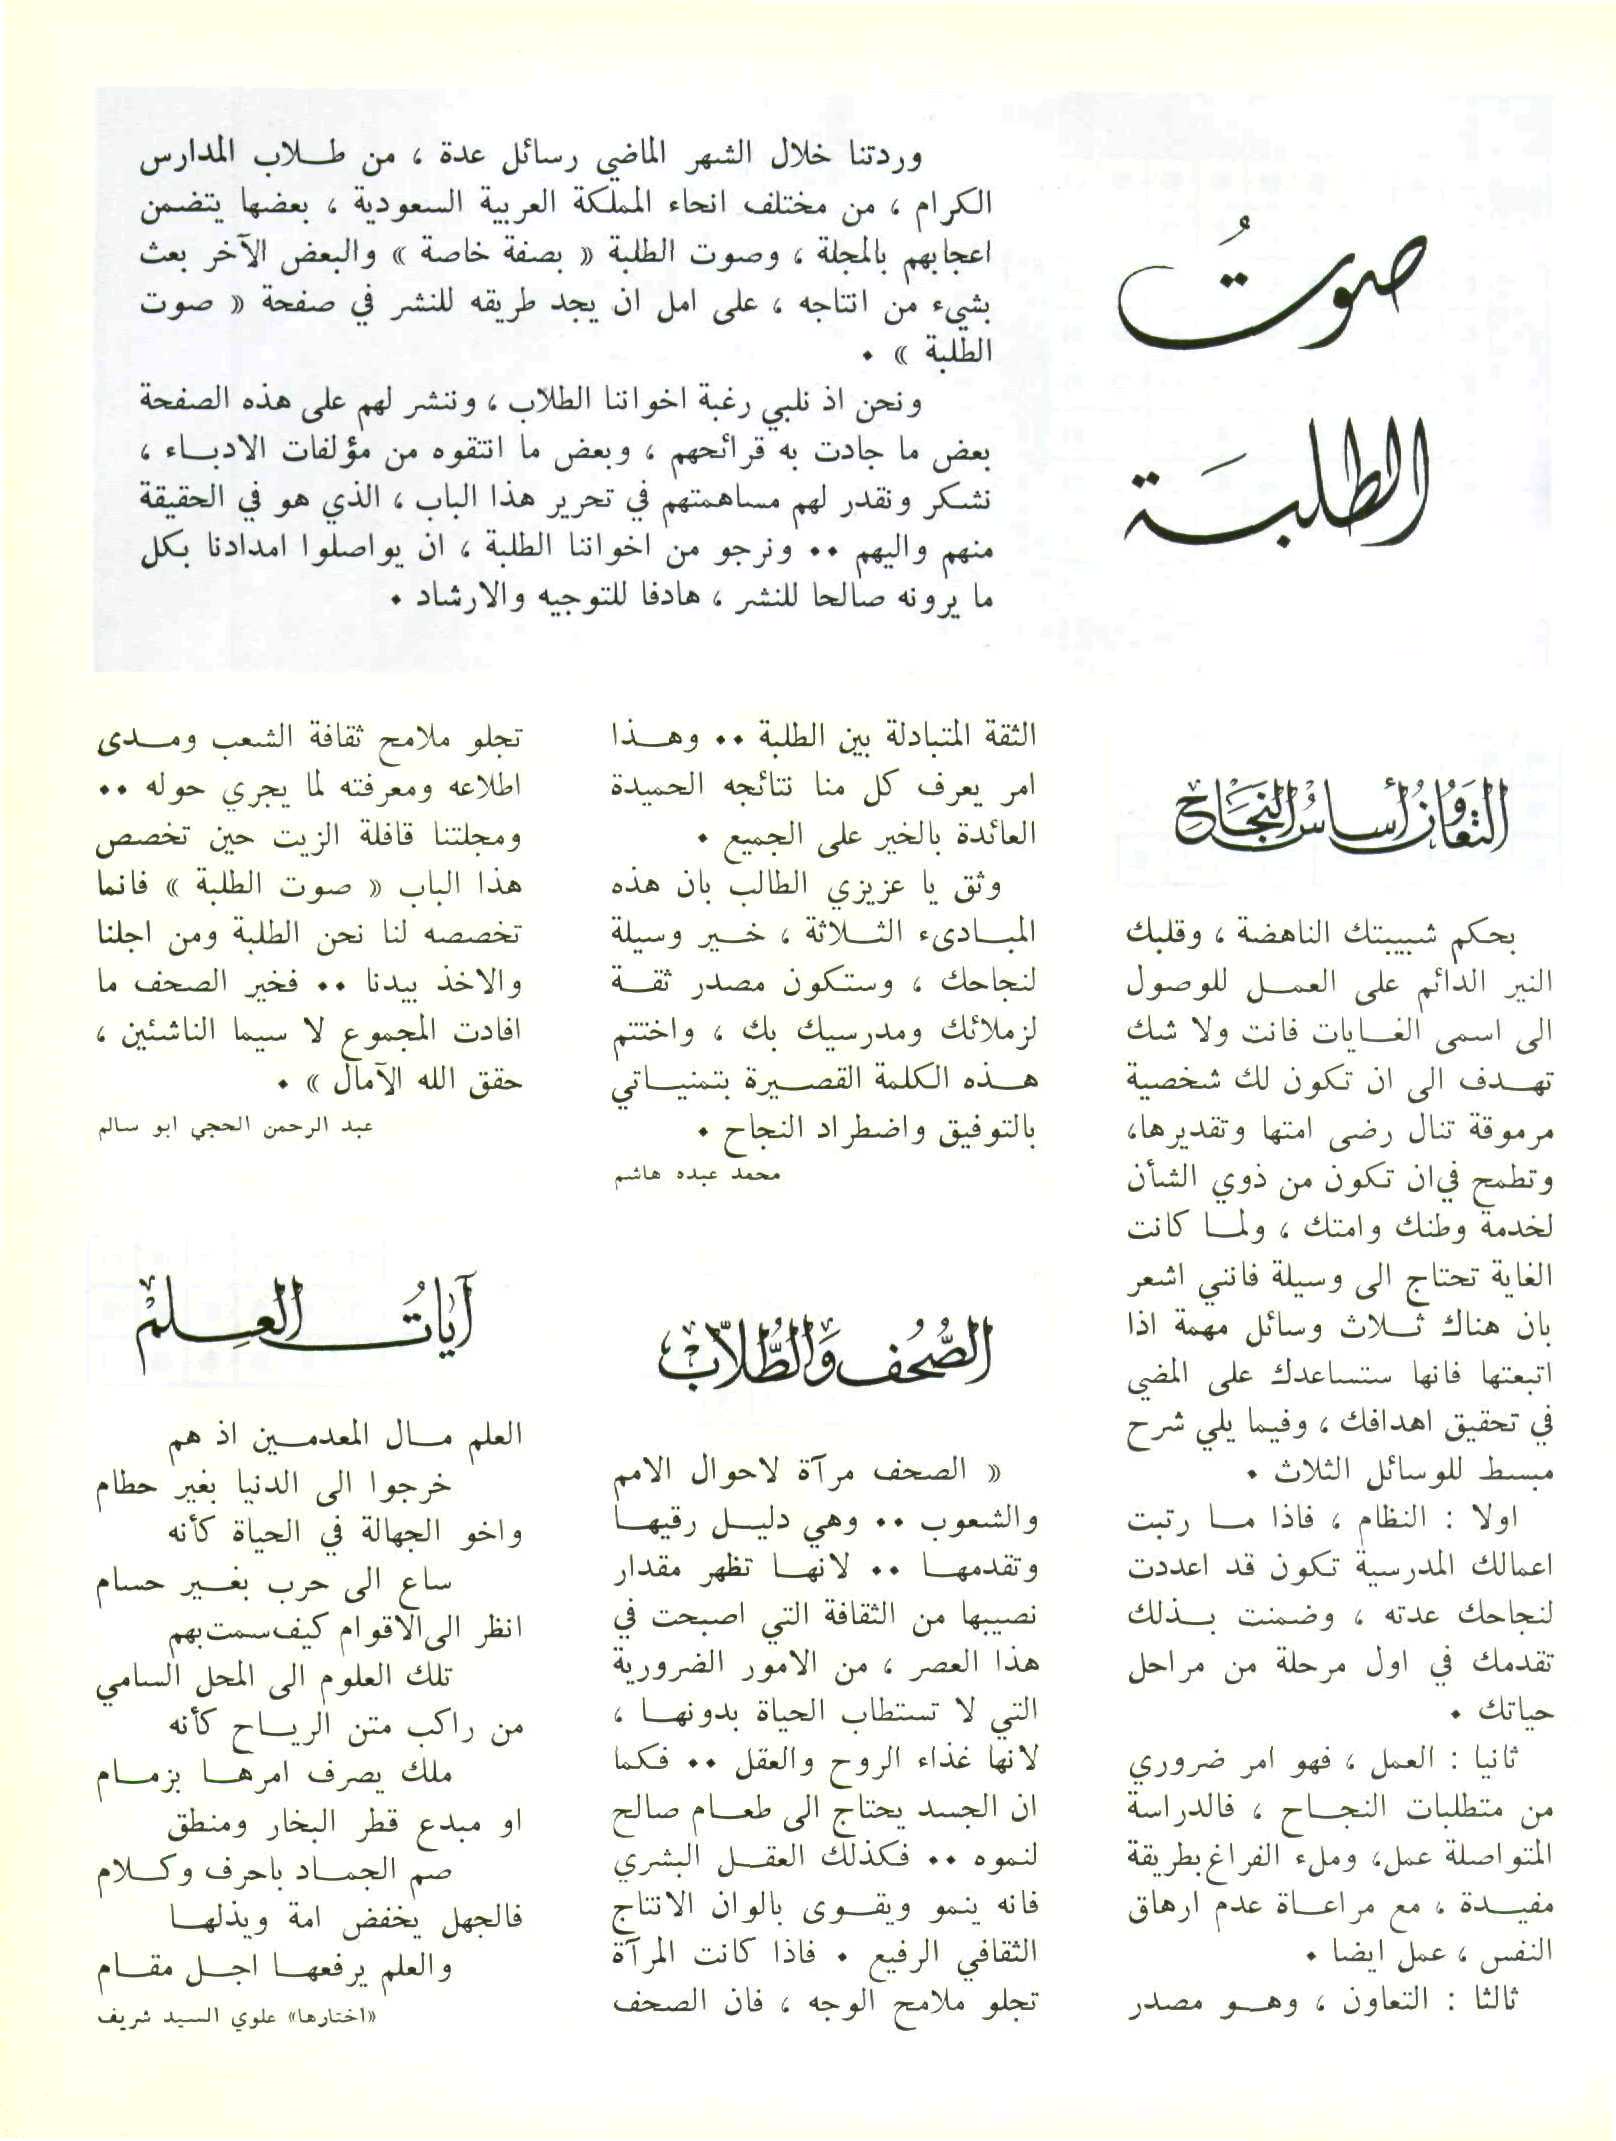 صوتُ
الطلبَة
وردتنا خلال الشهر الماضي رسائل عدة ، من طلاب المدارس
الكرام ، من مختلف انحاء المملكة العربية السعودية ، بعضها يتضمن
اعجابهم بالمجلة ، وصوت الطلبة « بصفة خاصة » والبعض الآخر بعث
بشيء من انتاجه ، على امل ان يجد طريقه للنشر في صفحة « صوت
الطلبة » .
ونحن اذ نلبي رغبة اخواننا الطلاب ، وننشر لهم على هذه الصفحة
بعض ما جادت به قرائحهم ، وبعض ما انتقوه من مؤلفات الادباء ،
نشكر ونقدر لهم مساهمتهم في تحرير هذا الباب ، الذي هو في الحقيقة
منهم واليهم .. ونرجو من اخواننا الطلبة ، ان يواصلوا امدادنا بكل
ما يرونه صالحا للنشر ، هادفا للتوجيه والارشاد .
التعَاوُنُ أساسُ النجَاح
بحكم شبيبتك الناهضة ، وقلبك
النير الدائم على العمل للوصول
الى اسمى الغايات فانت ولا شك
تهدف الى ان تكون لك شخصية
مرموقة تنال رضى امتها وتقديرها،
وتطمح في ان تكون من ذوي الشأن
لخدمة وطنك وامتك ، ولما كانت
الغاية تحتاج الى وسيلة فانني اشعر
بان هناك ثلاث وسائل مهمة اذا
اتبعتها فانها ستساعدك على المضي
في تحقيق اهدافك ، وفيما يلي شرح
مبسط للوسائل الثلاث .
اولا : النظام ، فاذا ما رتبت
اعمالك المدرسية تكون قد اعددت
لنجاحك عدته ، وضمنت بذلك
تقدمك في اول مرحلة من مراحل
حياتك .
ثانيا : العمل ، فهو امر ضروري
من متطلبات النجاح ، فالدراسة
المتواصلة عمل، وملء الفراغ بطريقة
مفيدة ، مع مراعاة عدم ارهاق
النفس ، عمل ايضا .
ثالثا : التعاون ، وهو مصدر
الثقة المتبادلة بين الطلبة .. وهذا
امر يعرف كل منا نتائجه الحميدة
العائدة بالخير على الجميع .
وثق يا عزيزي الطالب بان هذه
المبادىء الثلاثة ، خير وسيلة
لنجاحك ، وستكون مصدر ثقة
لزملائك ومدرسيك بك ، واختتم
هذه الكلمة القصيرة بتمنياتي
بالتوفيق واضطراد النجاح .
محمد عبده هاشم
الصُّحُف وَالطُّلّاب
« الصحف مرآة لاحوال الامم
والشعوب .. وهي دليل رقيها
وتقدمها .. لانها تظهر مقدار
نصيبها من الثقافة التي اصبحت في
هذا العصر ، من الامور الضرورية
التي لا تستطاب الحياة بدونها ،
لانها غذاء الروح والعقل .. فكما
ان الجسد يحتاج الى طعام صالح
لنموه .. فكذلك العقل البشري
فانه ينمو ويقوى بالوان الانتاج
الثقافي الرفيع . فاذا كانت المرآة
تجلو ملامح الوجه ، فان الصحف
تجلو ملامح ثقافة الشعب ومدى
اطلاعه ومعرفته لما يجري حوله ..
ومجلتنا قافلة الزيت حين تخصص
هذا الباب « صوت الطلبة » فانما
تخصصه لنا نحن الطلبة ومن اجلنا
والاخذ بيدنا .. فخير الصحف ما
افادت المجموع لا سيما الناشئين ،
حقق الله الآمال » .
عبد الرحمن الحجي ابو سالم
آيَاتُ العِلمْ
العلم مال المعدمين اذ هم
خرجوا الى الدنيا بغير حطام
واخو الجهالة في الحياة كأنه
ساع الى حرب بغير حسام
انظر الى الاقوام كيف سمت بهم
تلك العلوم الى المحل السامي
من راكب متن الرياح كأنه
ملك يصرف امرها بزمام
او مبدع قطر البخار ومنطق
صم الجماد باحرف وكلام
فالجهل يخفض امة ويذلها
والعلم يرفعها اجل مقام
«اختارها» علوي السيد شريف